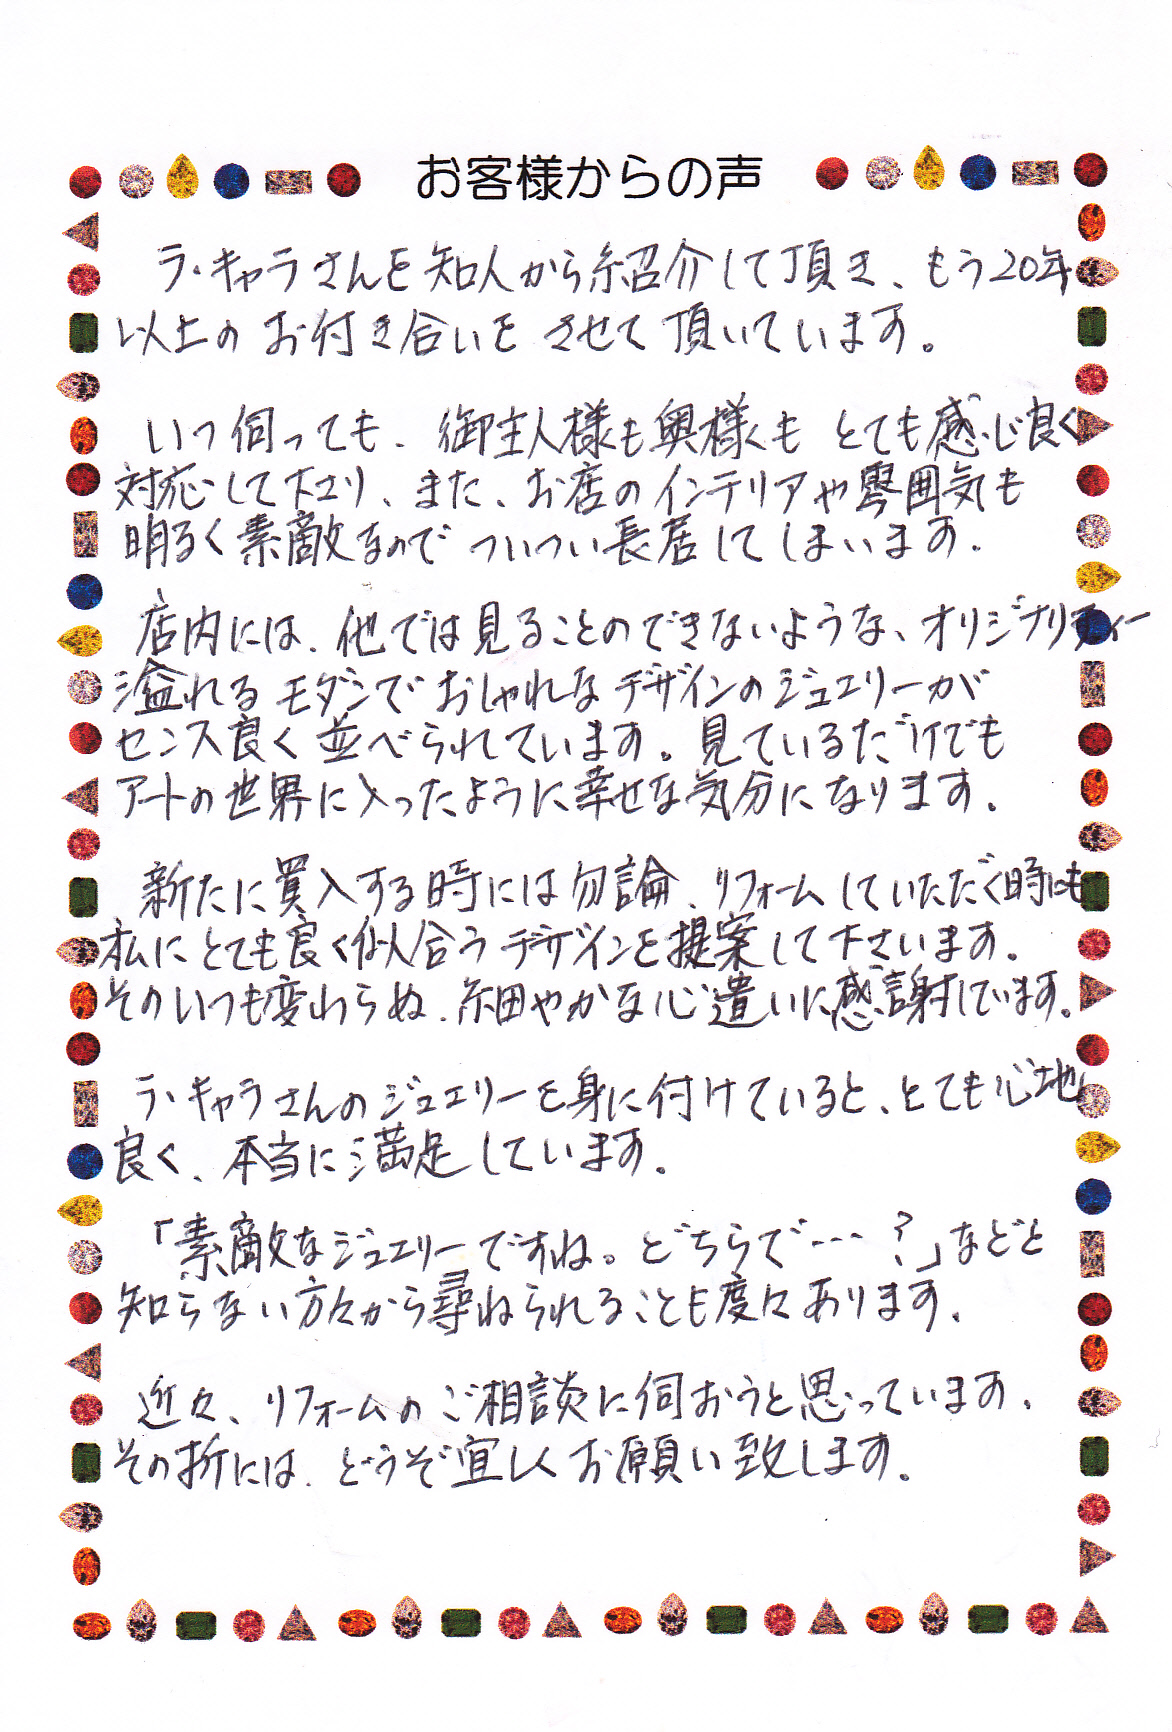 お客様からの声
ラ・キャラさんを知人から紹介して頂き、もう20年
以上のお付き合いをさせて頂いています。
いつ伺っても、御主人様も奥様もとても感じ良く
対応して下エリ、また、お店のインテリアや雰囲気も
明るく素敵なのでついつい長居してしまいます。
店内には、他では見ることのできないような、オリジナリティー
溢れるモダンでおしゃれなデザインのジュエリーが
センス良く並べられています。見ているだけでも
アートの世界に入ったように幸せな気分になります。
新たに買入する時には勿論、リフォームしていただく時にも
私にとても良く似合うデザインを提案して下さいます。
そのいつも変わらぬ、細やかな心遣いに感謝しています。
ラ・キャラさんのジュエリーを身に付けていると、とても心地
良く、本当に満足しています。
「素敵なジュエリーですね。どちらで…?」などと
知らない方々から尋ねられることも度々あります。
近々、リフォームのご相談に伺おうと思っています。
その折には、どうぞ宜しくお願い致します。